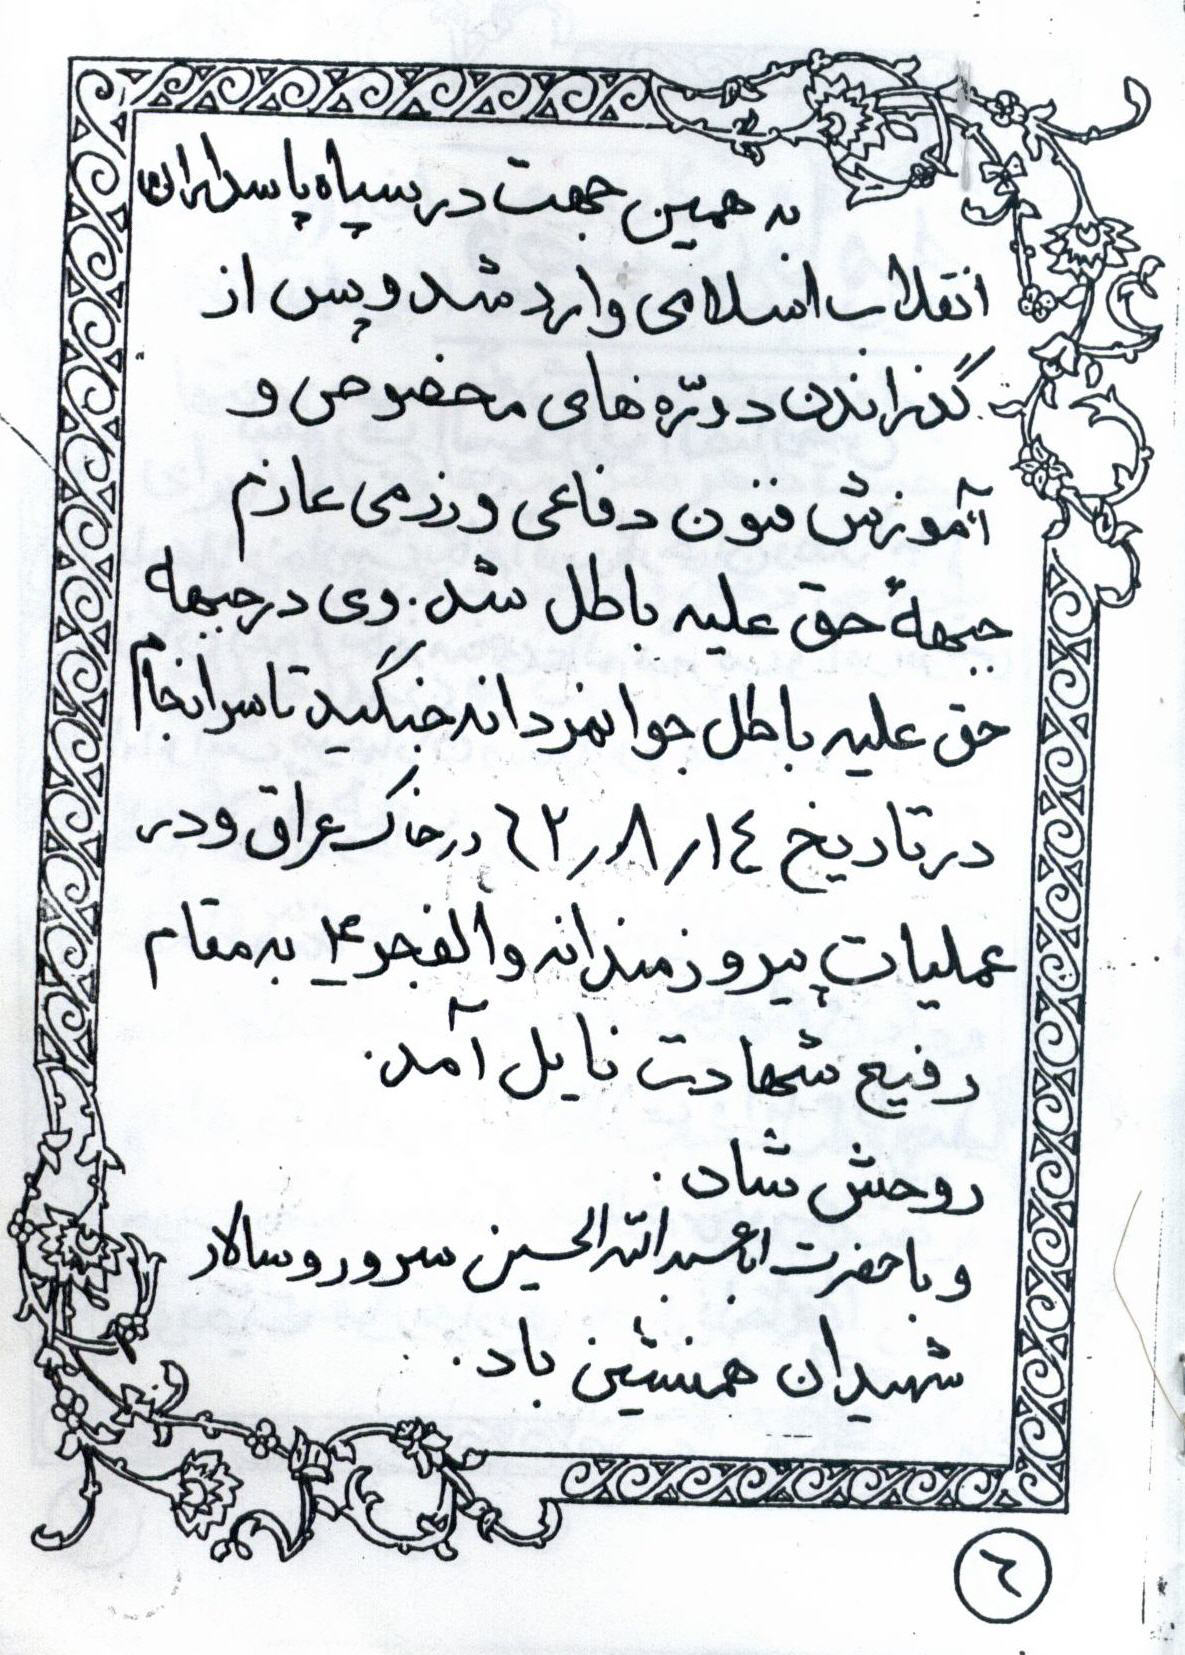 به همین جهت در سپاه پاسداران
انقلاب اسلامی وارد شد و پس از
گذراندن دورّه های مخصوص و
آموزش فنون دفاعی و رزمی عازم
جبههٔ حق علیه باطل شد. وی در جبهه
حق علیه باطل جوانمردانه جنگید تا سرانجام
در تاریخ ۶۲٫۸٫۱۴ در خاک عراق و در
عملیات پیروزمندانه والفجر ۴ به مقام
رفیع شهادت نایل آمد.
روحش شاد.
و با حضرت اباعبدالله الحسین سرور و سالار
شهیدان همنشین باد.
۶